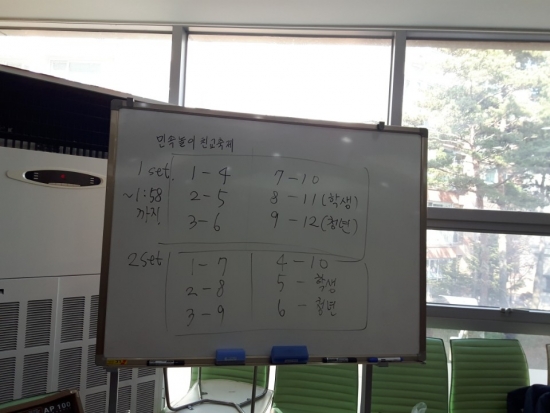 민속놀이 친교축제
1 set. 1-4 7-10
~1:58 2-5 8-11 (학생)
까지! 3-6 9-12 (청년)
2 set 1-7 4-10
2-8 5-학생
3-9 6-청년
AP 100